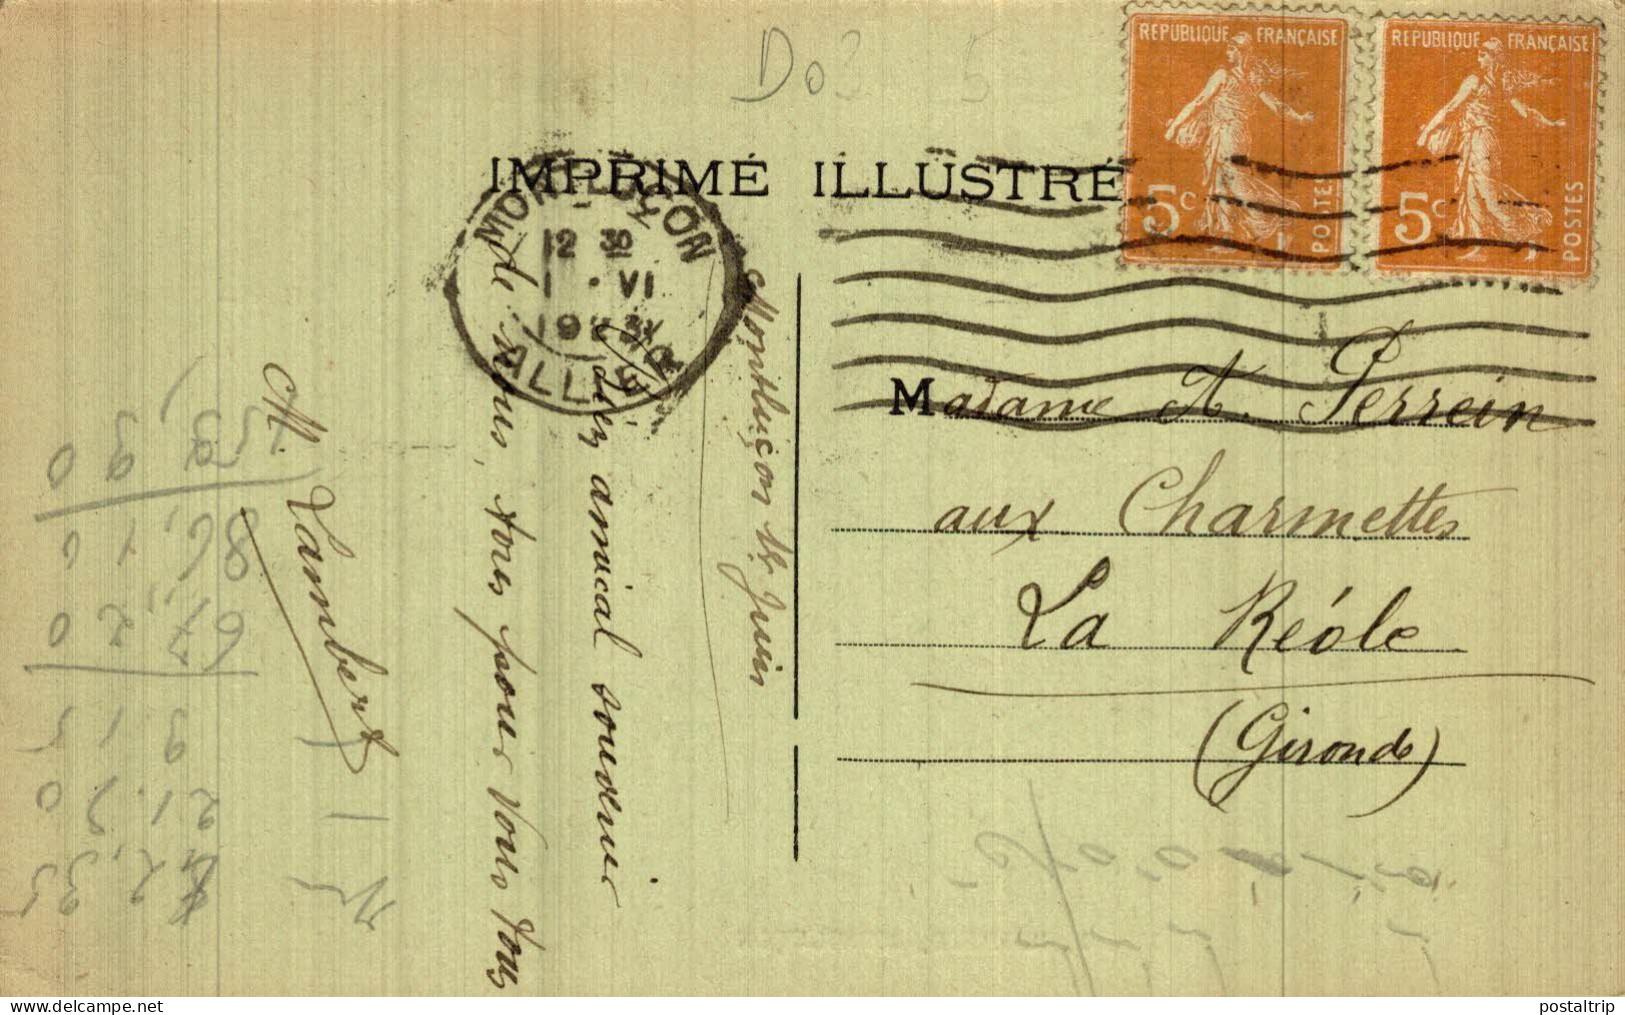 Do3 5
REPUBLIQUE FRANÇAISE
5c
POSTES
REPUBLIQUE FRANÇAISE
5c
POSTES
IMPRIMÉ ILLUSTRÉ
MONTLUÇON
12 30
1 • VI
ALLIER
Montluçon 1er Juin
bien amical souvenir
de nous, tous pour vous tous
M. Lambert
Madame A. Perrein
aux Charmettes
La Réole
(Gironde)
9 0
86,10
67,20
9 15
21.90
2,35
postaltrip